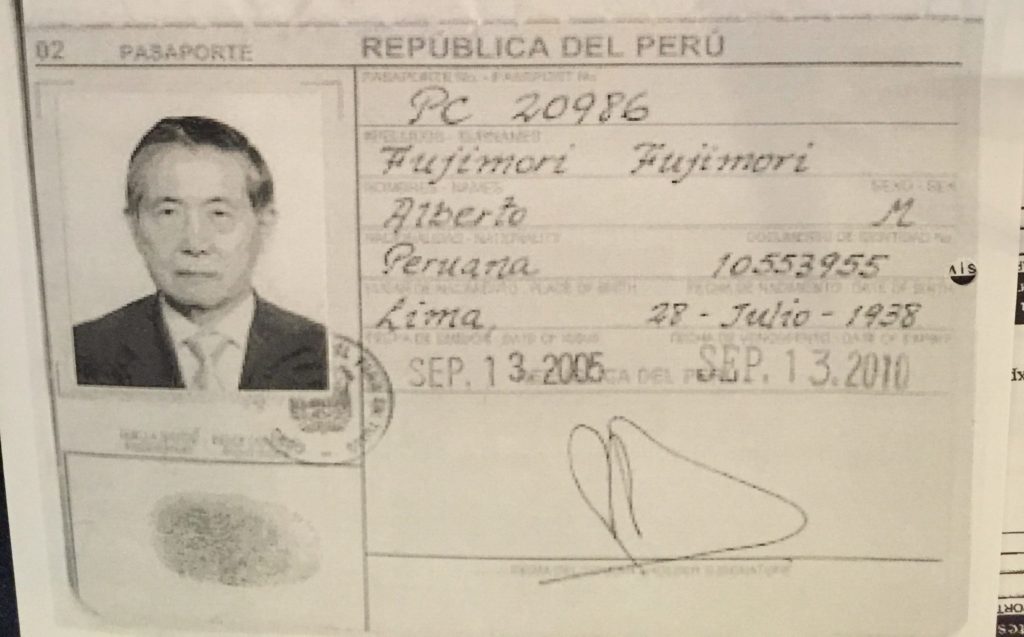 02 PASAPORTE REPÚBLICA DEL PERÚ
PASAPORTE No. - PASSPORT No.
PC 20986
APELLIDOS - SURNAMES
Fujimori Fujimori
NOMBRES - NAMES SEXO - SEX
Alberto M
NACIONALIDAD - NATIONALITY DOCUMENTO DE IDENTIDAD No.
Peruana 10553955
LUGAR DE NACIMIENTO - PLACE OF BIRTH FECHA DE NACIMIENTO - DATE OF BIRTH
Lima, 28 - Julio - 1938
FECHA DE EMISION - DATE OF ISSUE FECHA DE VENCIMIENTO - DATE OF EXPIRY
SEP. 13.2005 SEP. 13.2010
REPÚBLICA DEL PERÚ